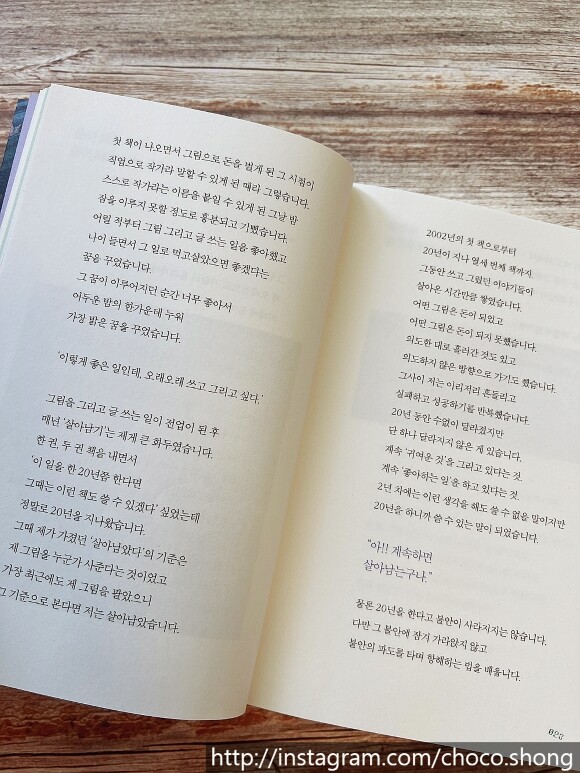 첫 책이 나오면서 그림으로 돈을 벌게 된 그 시점이
직업으로 작가라 말할 수 있게 된 때라 그렇습니다.
스스로 작가라는 이름을 붙일 수 있게 된 그날 밤
잠을 이루지 못할 정도로 흥분되고 기뻤습니다.
어릴 적부터 그림 그리고 글 쓰는 일을 좋아했고
나이 들면서 그 일로 먹고살았으면 좋겠다는
꿈을 꾸었습니다.
그 꿈이 이루어지던 순간 너무 좋아서
어두운 밤의 한가운데 누워
가장 밝은 꿈을 꾸었습니다.
'이렇게 좋은 일인데, 오래오래 쓰고 그리고 싶다.'
그림을 그리고 글 쓰는 일이 전업이 된 후
매년 '살아남기'는 제게 큰 화두였습니다.
한 권, 두 권 책을 내면서
'이 일을 한 20년쯤 한다면
그때는 이런 책도 쓸 수 있겠다' 싶었는데
정말로 20년을 지나왔습니다.
그때 제가 가졌던 '살아남았다'의 기준은
제 그림을 누군가 사준다는 것이었고
가장 최근에도 제 그림을 팔았으니
그 기준으로 본다면 저는 살아남았습니다.
2002년의 첫 책으로부터
20년이 지나 열세 번째 책까지.
그동안 쓰고 그렸던 이야기들이
살아온 시간만큼 쌓였습니다.
어떤 그림은 돈이 되었고
어떤 그림은 돈이 되지 못했습니다.
의도한 대로 흘러간 것도 있고
의도하지 않은 방향으로 가기도 했습니다.
그사이 저는 이리저리 흔들리고
실패하고 성공하기를 반복했습니다.
20년 동안 수없이 달라졌지만
단 하나 달라지지 않은 게 있습니다.
계속 '귀여운 것'을 그리고 있다는 것.
계속 '좋아하는 일'을 하고 있다는 것.
2년 차에는 이런 생각을 해도 쓸 수 없을 말이지만
20년을 하니까 쓸 수 있는 말이 되었습니다.
"아!! 계속하면
살아남는구나."
물론 20년을 한다고 불안이 사라지지는 않습니다.
다만 그 불안에 잠겨 가라앉지 않고
불안의 파도를 타며 항해하는 법을 배웁니다.
http://instagram.com/choco.shong